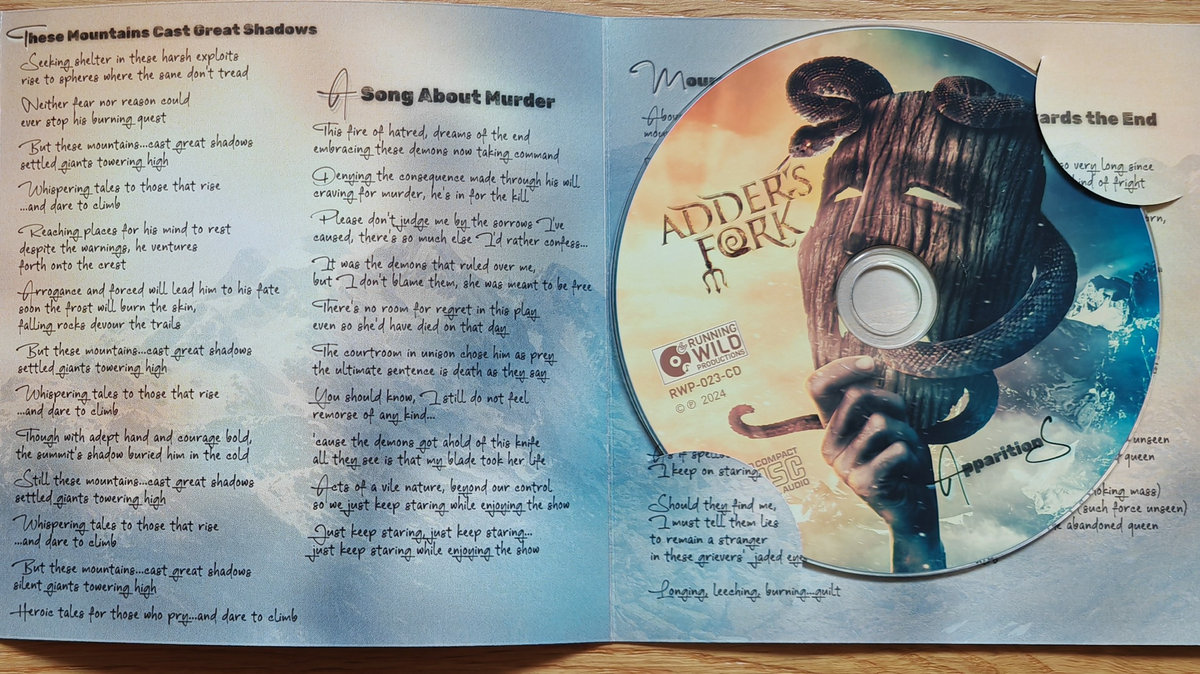 These Mountains Cast Great Shadows
Seeking shelter in these harsh exploits
rise to spheres where the sane don't tread
Neither fear nor reason could
ever stop his burning quest
But these mountains...cast great shadows
settled giants towering high
Whispering tales to those that rise
...and dare to climb
Reaching places for his mind to rest
despite the warnings, he ventures
forth onto the crest
Arrogance and forced will lead him to his fate
soon the frost will burn the skin,
falling rocks devour the trails
But these mountains...cast great shadows
settled giants towering high
Whispering tales to those that rise
...and dare to climb
Though with adept hand and courage bold,
the summit's shadow buried him in the cold
Still these mountains...cast great shadows
settled giants towering high
Whispering tales to those that rise
...and dare to climb
But these mountains...cast great shadows
silent giants towering high
Heroic tales for those who pry...and dare to climb
A Song About Murder
This fire of hatred, dreams of the end
embracing these demons now taking command
Denying the consequence made through his will
craving for murder, he's in for the kill
Please don't judge me by the sorrows I've
caused, there's so much else I'd rather confess...
It was the demons that ruled over me,
but I don't blame them, she was meant to be free
There's no room for regret in this play
even so she'd have died on that day
The courtroom in unison chose him as prey
the ultimate sentence is death as they say
You should know, I still do not feel
remorse of any kind...
'cause the demons got ahold of this knife
all they see is that my blade took her life
Acts of a vile nature, beyond our control
so we just keep staring while enjoying the show
Just keep staring, just keep staring...
just keep staring while enjoying the show
I keep on staring
Should they find me,
I must tell them lies
to remain a stranger
in these grievers' jaded
Longing, leeching, burning...guilt
ADDER'S
FORK
RUNNING
WILD
PRODUCTIONS
RWP-023-CD
© ℗ 2024
COMPACT
DISC
AUDIO
Apparitions
the End
so very long since
of fright
unseen
queen
mass)
(such force unseen)
abandoned queen